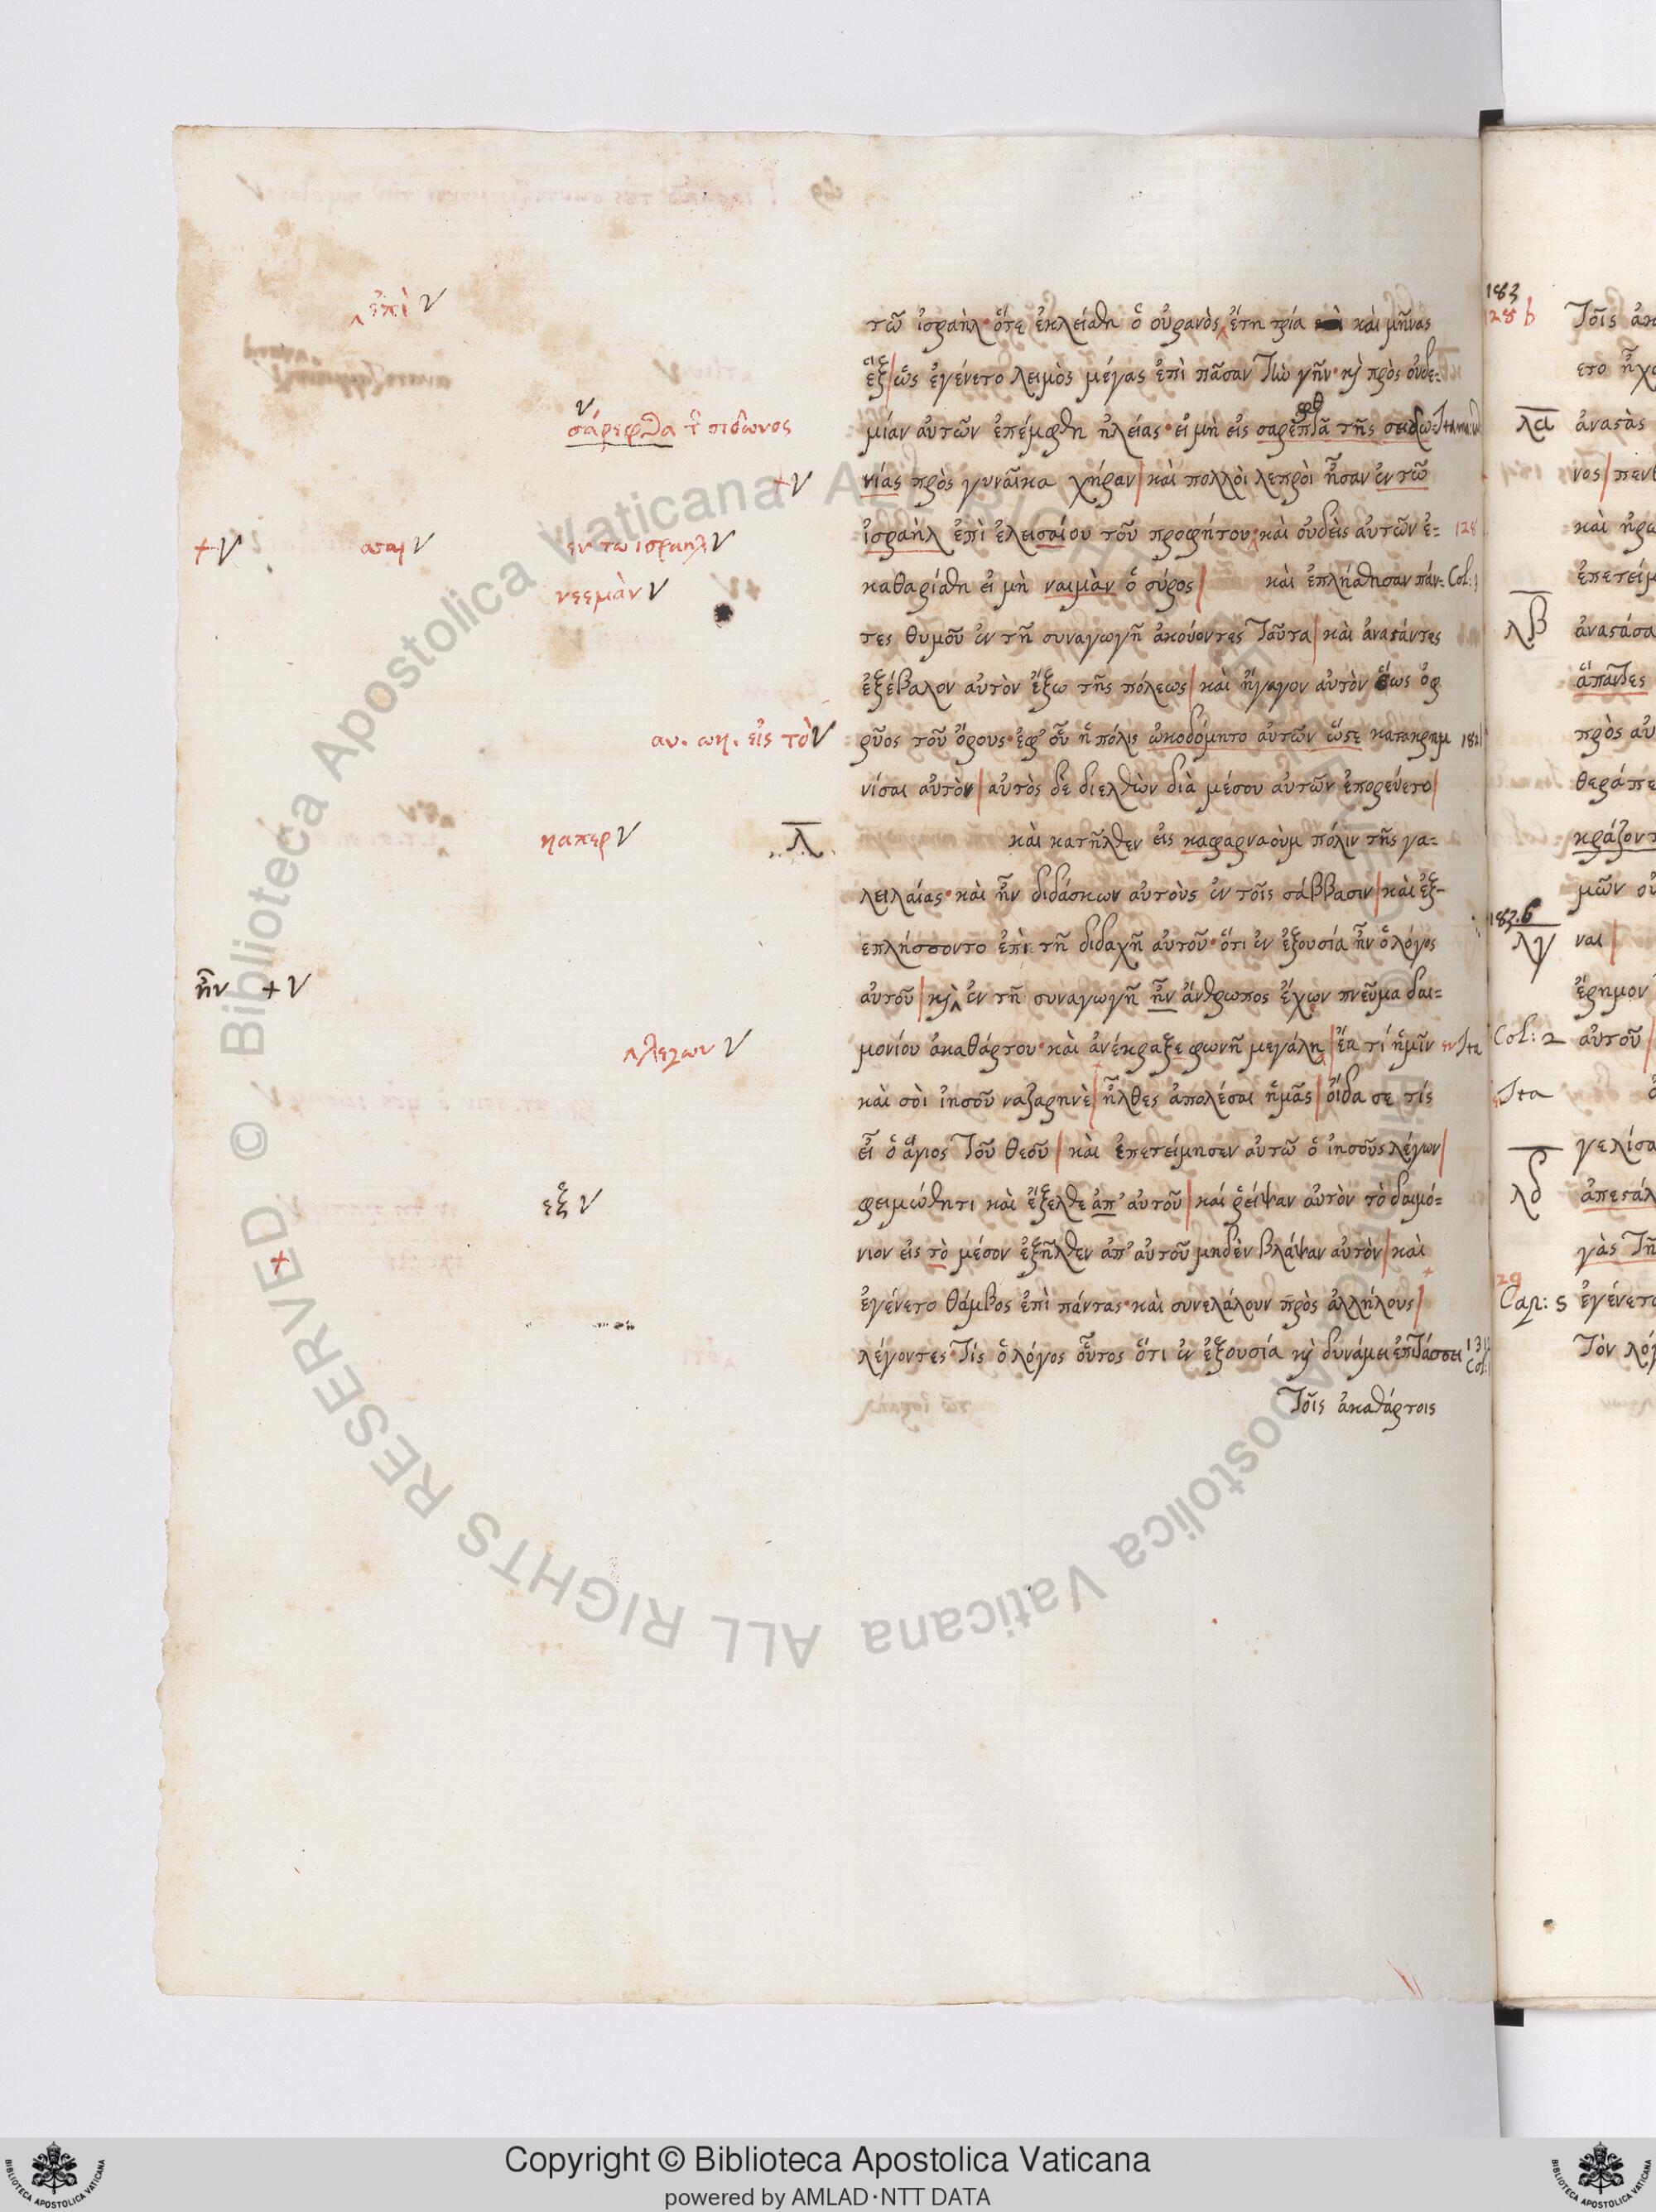 ἐπὶ
τῶ ἰσραὴλ· ὅτε ἐκλείσθη ὁ οὐρανὸς ἔτη τρία καὶ μῆνας
ἓξ ὡς ἐγένετο λειμὸς μέγας ἐπὶ πᾶσαν τὴν γῆν· κὶ πρὸς οὐδε=
σάρεφθα τ σιδωνος
μίαν αὐτῶν ἐπέμφθη ἠλείας· εἰ μὴ εἰς σαρεπτὰ τῆς σειδω=
νίας πρὸς γυναῖκα χήραν καὶ πολλοὶ λεπροὶ ἦσαν ἐν τῶ
εν τω ισραηλ
ἰσραὴλ ἐπὶ ἐλεισαίου τοῦ προφήτου· καὶ οὐδεὶς αὐτῶν ἐ= 128
νεεμὰν
καθαρίσθη εἰ μὴ ναιμὰν ὁ σύρος καὶ ἐπλήσθησαν πάν= Col:
τες θυμοῦ ἐν τῆ συναγωγῆ ἀκούοντες ταῦτα καὶ ἀναστάντες
ἐξέβαλον αὐτὸν ἔξω τῆς πόλεως καὶ ἤγαγον αὐτὸν ἕως ὀφ
αν. ωκ. εἰς τὸ
ρῦος τοῦ ὄρους· ἐφ' οὗ ἡ πόλις ὠκοδόμητο αὐτῶν ὥστε κατακρημ
νίσαι αὐτὸν αὐτὸς δὲ διελθὼν διὰ μέσου αὐτῶν ἐπορεύετο
καπερ λ
καὶ κατῆλθεν εἰς καφαρναοὺμ πόλιν τῆς γα=
λειλαίας· καὶ ἦν διδάσκων αὐτοὺς ἐν τοῖς σάββασιν καὶ ἐξ-
επλήσσοντο ἐπὶ τῆ διδαχῆ αὐτοῦ· ὅτι ἐν ἐξουσία ἦν ὁ λόγος
ἦν
αὐτοῦ κὶ ἐν τῆ συναγωγῆ ἦν ἄνθρωπος ἔχων πνεῦμα δαι=
λεγων
μονίου ἀκαθάρτου· καὶ ἀνέκραξε φωνῆ μεγάλη ἔα τί ἡμῖν
καὶ σοὶ ἰησοῦ ναζαρηνὲ ἦλθες ἀπολέσαι ἡμᾶς οἶδα σε τίς
εἶ ὁ ἅγιος τοῦ θεοῦ καὶ ἐπετείμησεν αὐτῶ ὁ ἰησοῦς λέγων
εξ
φειμώθητι καὶ ἔξελθε ἀπ' αὐτοῦ καί ῥεῖψαν αὐτὸν τὸ δαιμό=
νιον εἰς τὸ μέσον ἐξῆλθεν ἀπ' αὐτοῦ μηδὲν βλάψαν αὐτὸν καὶ
ἐγένετο θάμβος ἐπὶ πάντας· καὶ συνελάλουν πρὸς ἀλλήλους
λέγοντες· τίς ὁ λόγος οὗτος ὅτι ἐν ἐξουσία κὶ δυνάμει ἐπιτάσσει
τοῖς ἀκαθάρτοις
183
128 b τοῖς ἀκ
ετο ἦχο
λα ἀναστὰς
νος πενθ
καὶ ἠρω
ἐπετείμ
λβ ἀναστᾶσα
ἅπαντες
πρὸς αὐ
θεράπε
κράζοντ
μῶν οὐ
183.6
λγ ναι
ἔρημον
Col: 2 αὐτοῦ
Ita
γελίσα
λδ ἀπεστάλ
γὰς τῆ
29
Cap: 5 ἐγένετο
τὸν λόγ
© Biblioteca Apostolica Vaticana ALL RIGHTS RESERVED
Copyright © Biblioteca Apostolica Vaticana
powered by AMLAD·NTT DATA
BIBLIOTECA APOSTOLICA VATICANA
BIBLIOTECA APOSTOLICA VATICANA